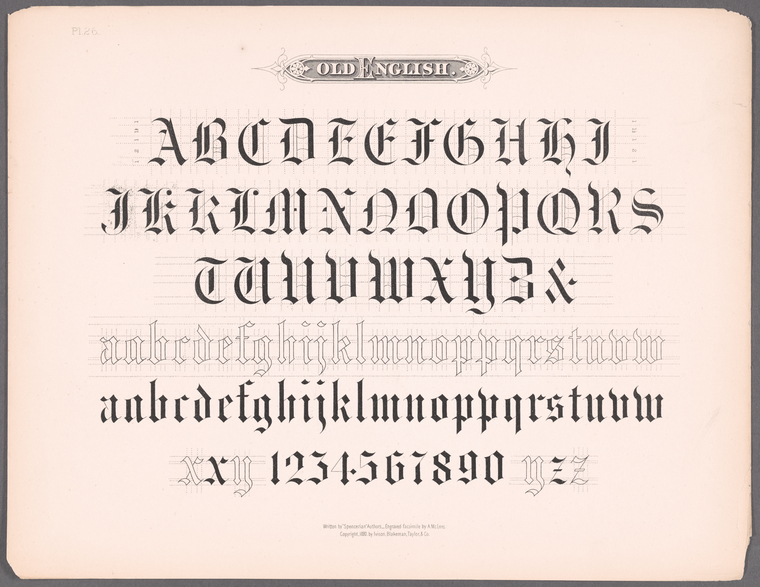 Pl.26.
OLD ENGLISH.
ABCDEEFGHHI
JKKLMNNOOPQRS
TUUVWXYZ&
aabcdefghijklmnoppqrstuvw
aabcdefghijklmnoppqrstuvw
xxy 1234567890 yzz
Written by "Spencerian" Authors, Engraved Facsimile by A. McLees.
Copyright, by Ivison, Blakeman, Taylor & Co.